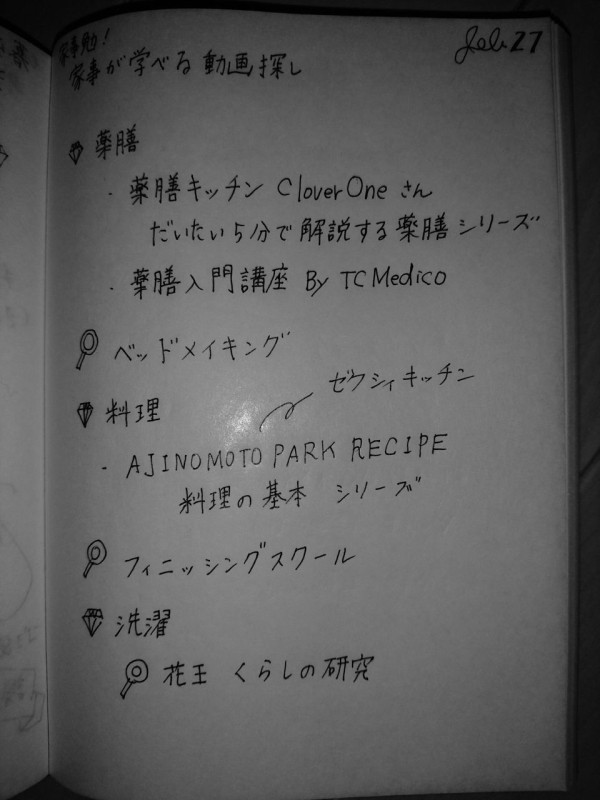 家事勉!
家事が学べる動画探し
Feb 27
薬膳
・薬膳キッチン CloverOne さん
だいたい5分で解説する薬膳シリーズ
・薬膳入門講座 By TCMedico
ベッドメイキング
ゼクシィキッチン
料理
・AJINOMOTO PARK RECIPE
料理の基本 シリーズ
フィニッシングスクール
洗濯
花王 くらしの研究